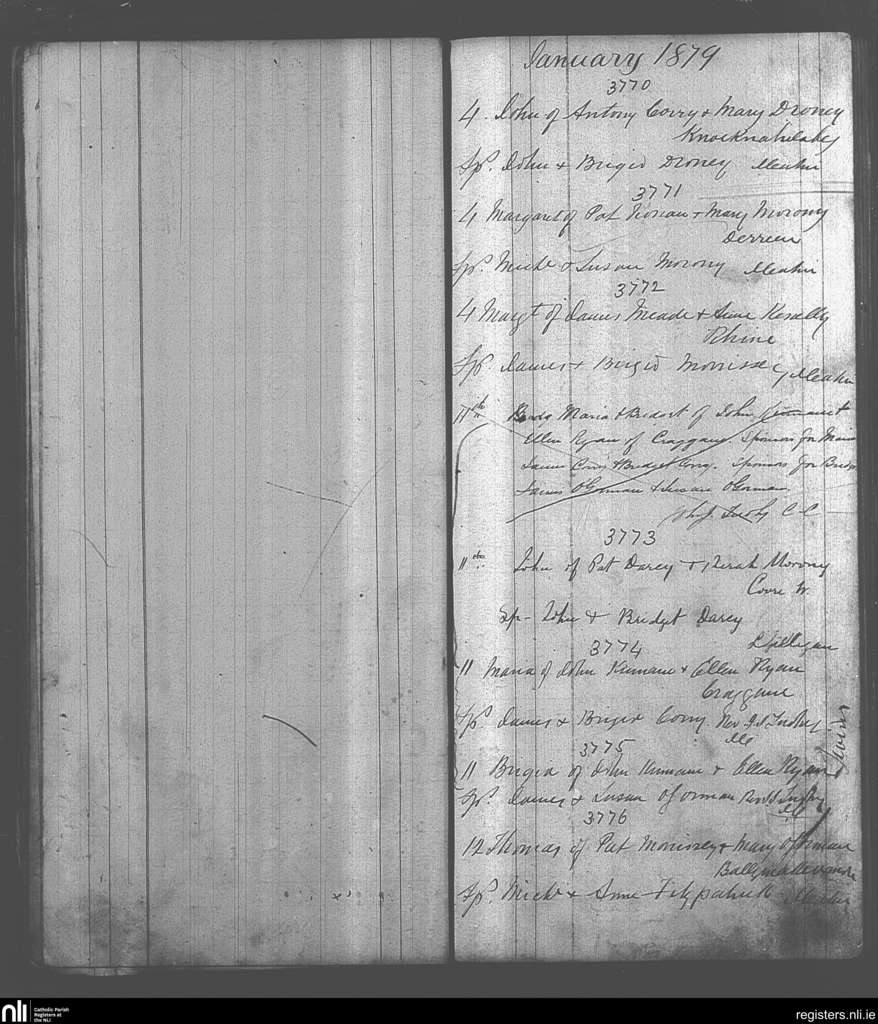 January 1879
3770
4. John of Antony Corry & Mary Droney
Knocknahilaky
Sp. John & Brigid Droney Meahir
3771
4 Margaret of Pat & Mary Morony
Derreen
Sp. Michl & Susan Morony Meahir
3772
4 Margt of James Meade & Anne
Rhine
Sp. James & Brigid Morrissey Meahir
11th Maria & Bridget of John Kinnane &
Ellen Ryan of Craggane Sponsors for Maria
James & Bridget Corry. Sponsors for
James O'Gorman & Susan O'Gorman
C C
3773
11th John of Pat Darcy & Morony
W.
Sp- John & Bridget Darcy
3774
11 Maria of John Kinnane & Ellen Ryan
Craggane
Sp. James & Brigid Corry Rev
3775
11 Brigid of John Kinnane & Ellen Ryan
Sp. James & Susan O'Gorman
3776
12 Thomas of Pat Morrissey & Mary O'Gorman
Sp. Michl & Anne Fitzpatrick Meahir
nli
Catholic Parish
Registers at
the NLI
registers.nli.ie